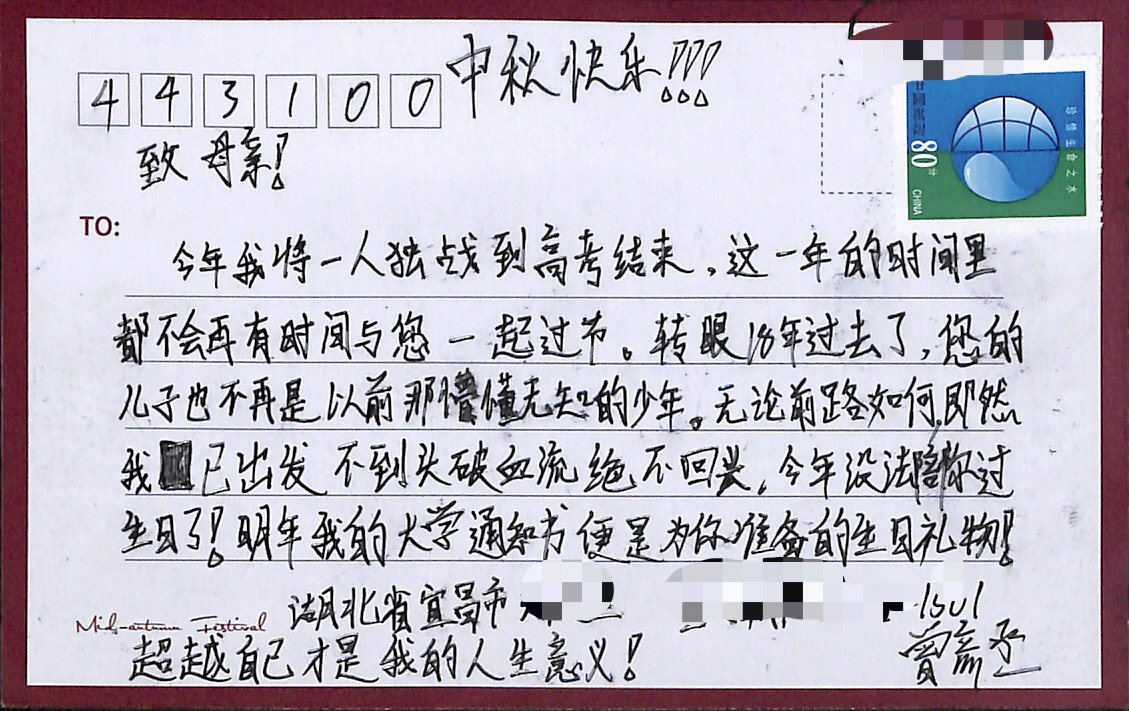 中秋快乐!!!
443100
中国邮政
80分
CHINA
珍惜生命之水
致母亲!
TO:
今年我将一人独战到高考结束,这一年的时间里
都不会再有时间与您一起过节。转眼18年过去了,您的
儿子也不再是以前那懵懂无知的少年。无论前路如何即然
我已出发不到头破血流绝不回头。今年没法陪你过
生日了!明年我的大学通知书便是为你准备的生日礼物!
湖北省宜昌市
Mid-autumn Festival
超越自己才是我的人生意义!